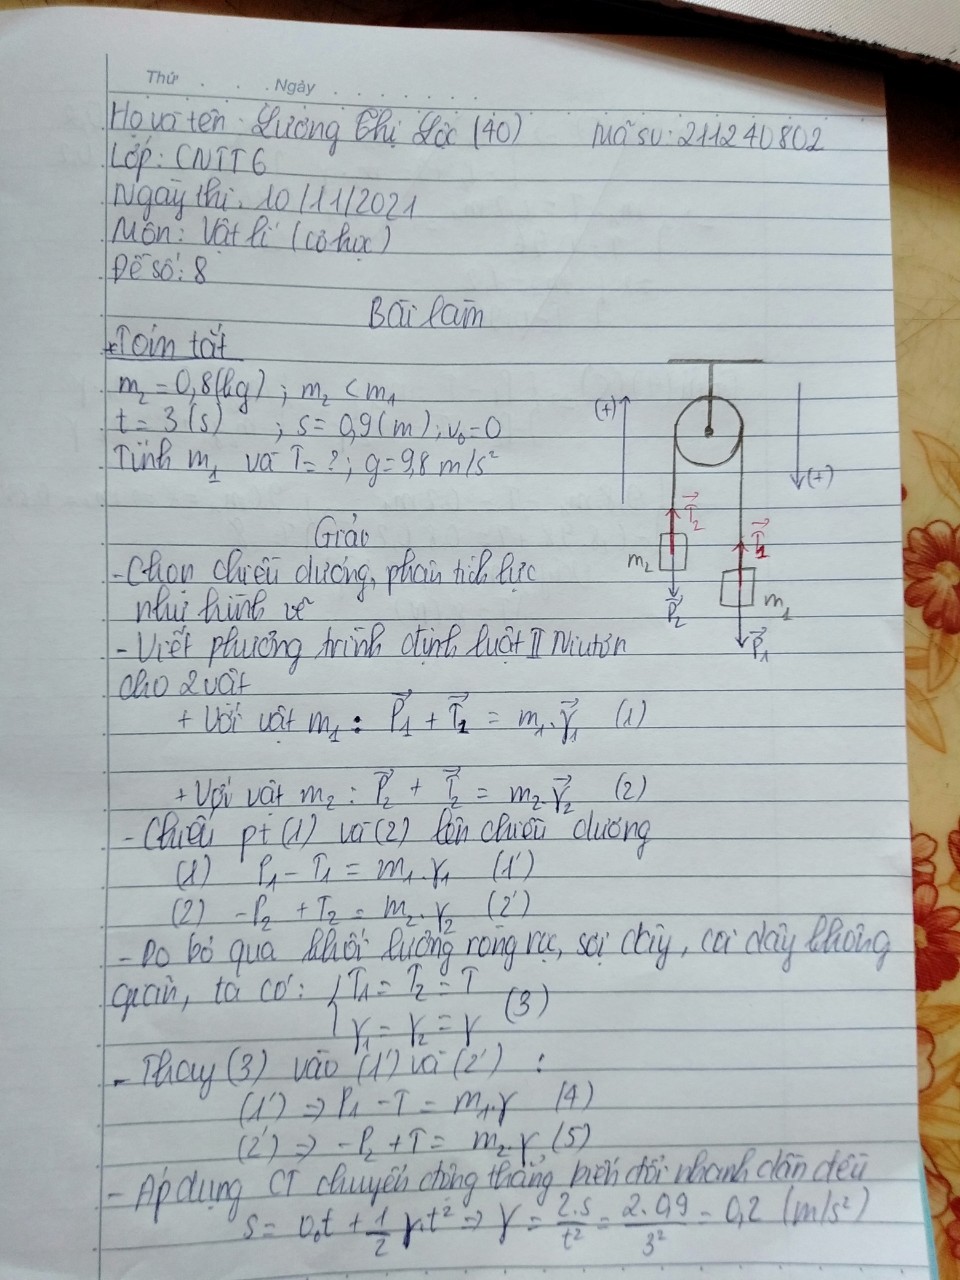 Thứ . . . . Ngày . . . . . . .
Họ và tên: Lương Thị Lộc (40) Mã sv: 211240802
Lớp: CNTT6
Ngày thi: 10/11/2021
Môn: Vật lí (cơ học)
Đề số: 8
Bài làm
+Tóm tắt
m₂ = 0,8(kg) ; m₂ < m₁
t = 3 (s) ; s = 0,9 (m) ; v₀ = 0
Tính m₁ và T = ? ; g = 9,8 m/s²
(+) (+)
T⃗₂ T⃗₁
m₂ m₁
P⃗₂ P⃗₁
Giải
- Chọn chiều dương, phân tích lực
như hình vẽ
- Viết phương trình định luật II Niutơn
cho 2 vật
+ Với vật m₁ : P⃗₁ + T⃗₁ = m₁.γ⃗₁ (1)
+ Với vật m₂ : P⃗₂ + T⃗₂ = m₂.γ⃗₂ (2)
- Chiếu pt (1) và (2) lên chiều dương
(1) P₁ - T₁ = m₁.γ₁ (1')
(2) -P₂ + T₂ = m₂.γ₂ (2')
- Do bỏ qua khối lượng ròng rọc, sợi dây, coi dây không
giãn, ta có: { T₁ = T₂ = T
γ₁ = γ₂ = γ (3)
- Thay (3) vào (1') và (2') :
(1') => P₁ - T = m₁.γ (4)
(2') => -P₂ + T = m₂.γ (5)
- Áp dụng CT chuyển động thẳng biến đổi nhanh dần đều
s = v₀t + 1/2 γ.t² => γ = 2.s/t² = 2.0,9/3² = 0,2 (m/s²)